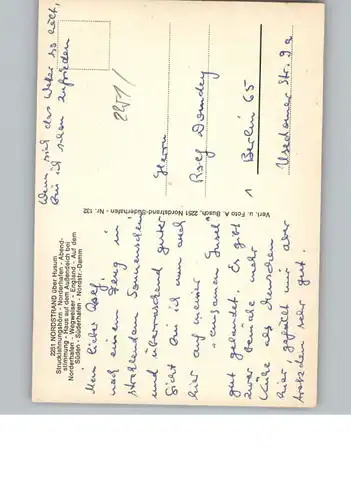 2251 NORDSTRAND über Husum
Strucklahnungshörn - Norderhafen - Abend-
stimmung - Haus auf dem Außendeich bei
Norderhafen - Wegweiser - England - Auf dem
Süden - Süderhafen - Nordstr.-Damm
Mein lieber Rolf,
nach einem Flug in
strahlendem Sonnenschein
und überraschend guter
Sicht bin ich nun auch
hier auf meiner
"einsamen Insel"
gut gelandet. Es gibt
zwar beinahe mehr
Kühe als Menschen
hier, gefällt mir aber
trotzdem sehr gut.
Wenn sich das Wetter so hält,
bin ich schon zufrieden
Verl. u. Foto A. Busch, 2251 Nordstrand-Süderhafen - Nr. 132
2251/
Herrn
Rolf Domdey
1 Berlin 65
Usedomer Str. 9a